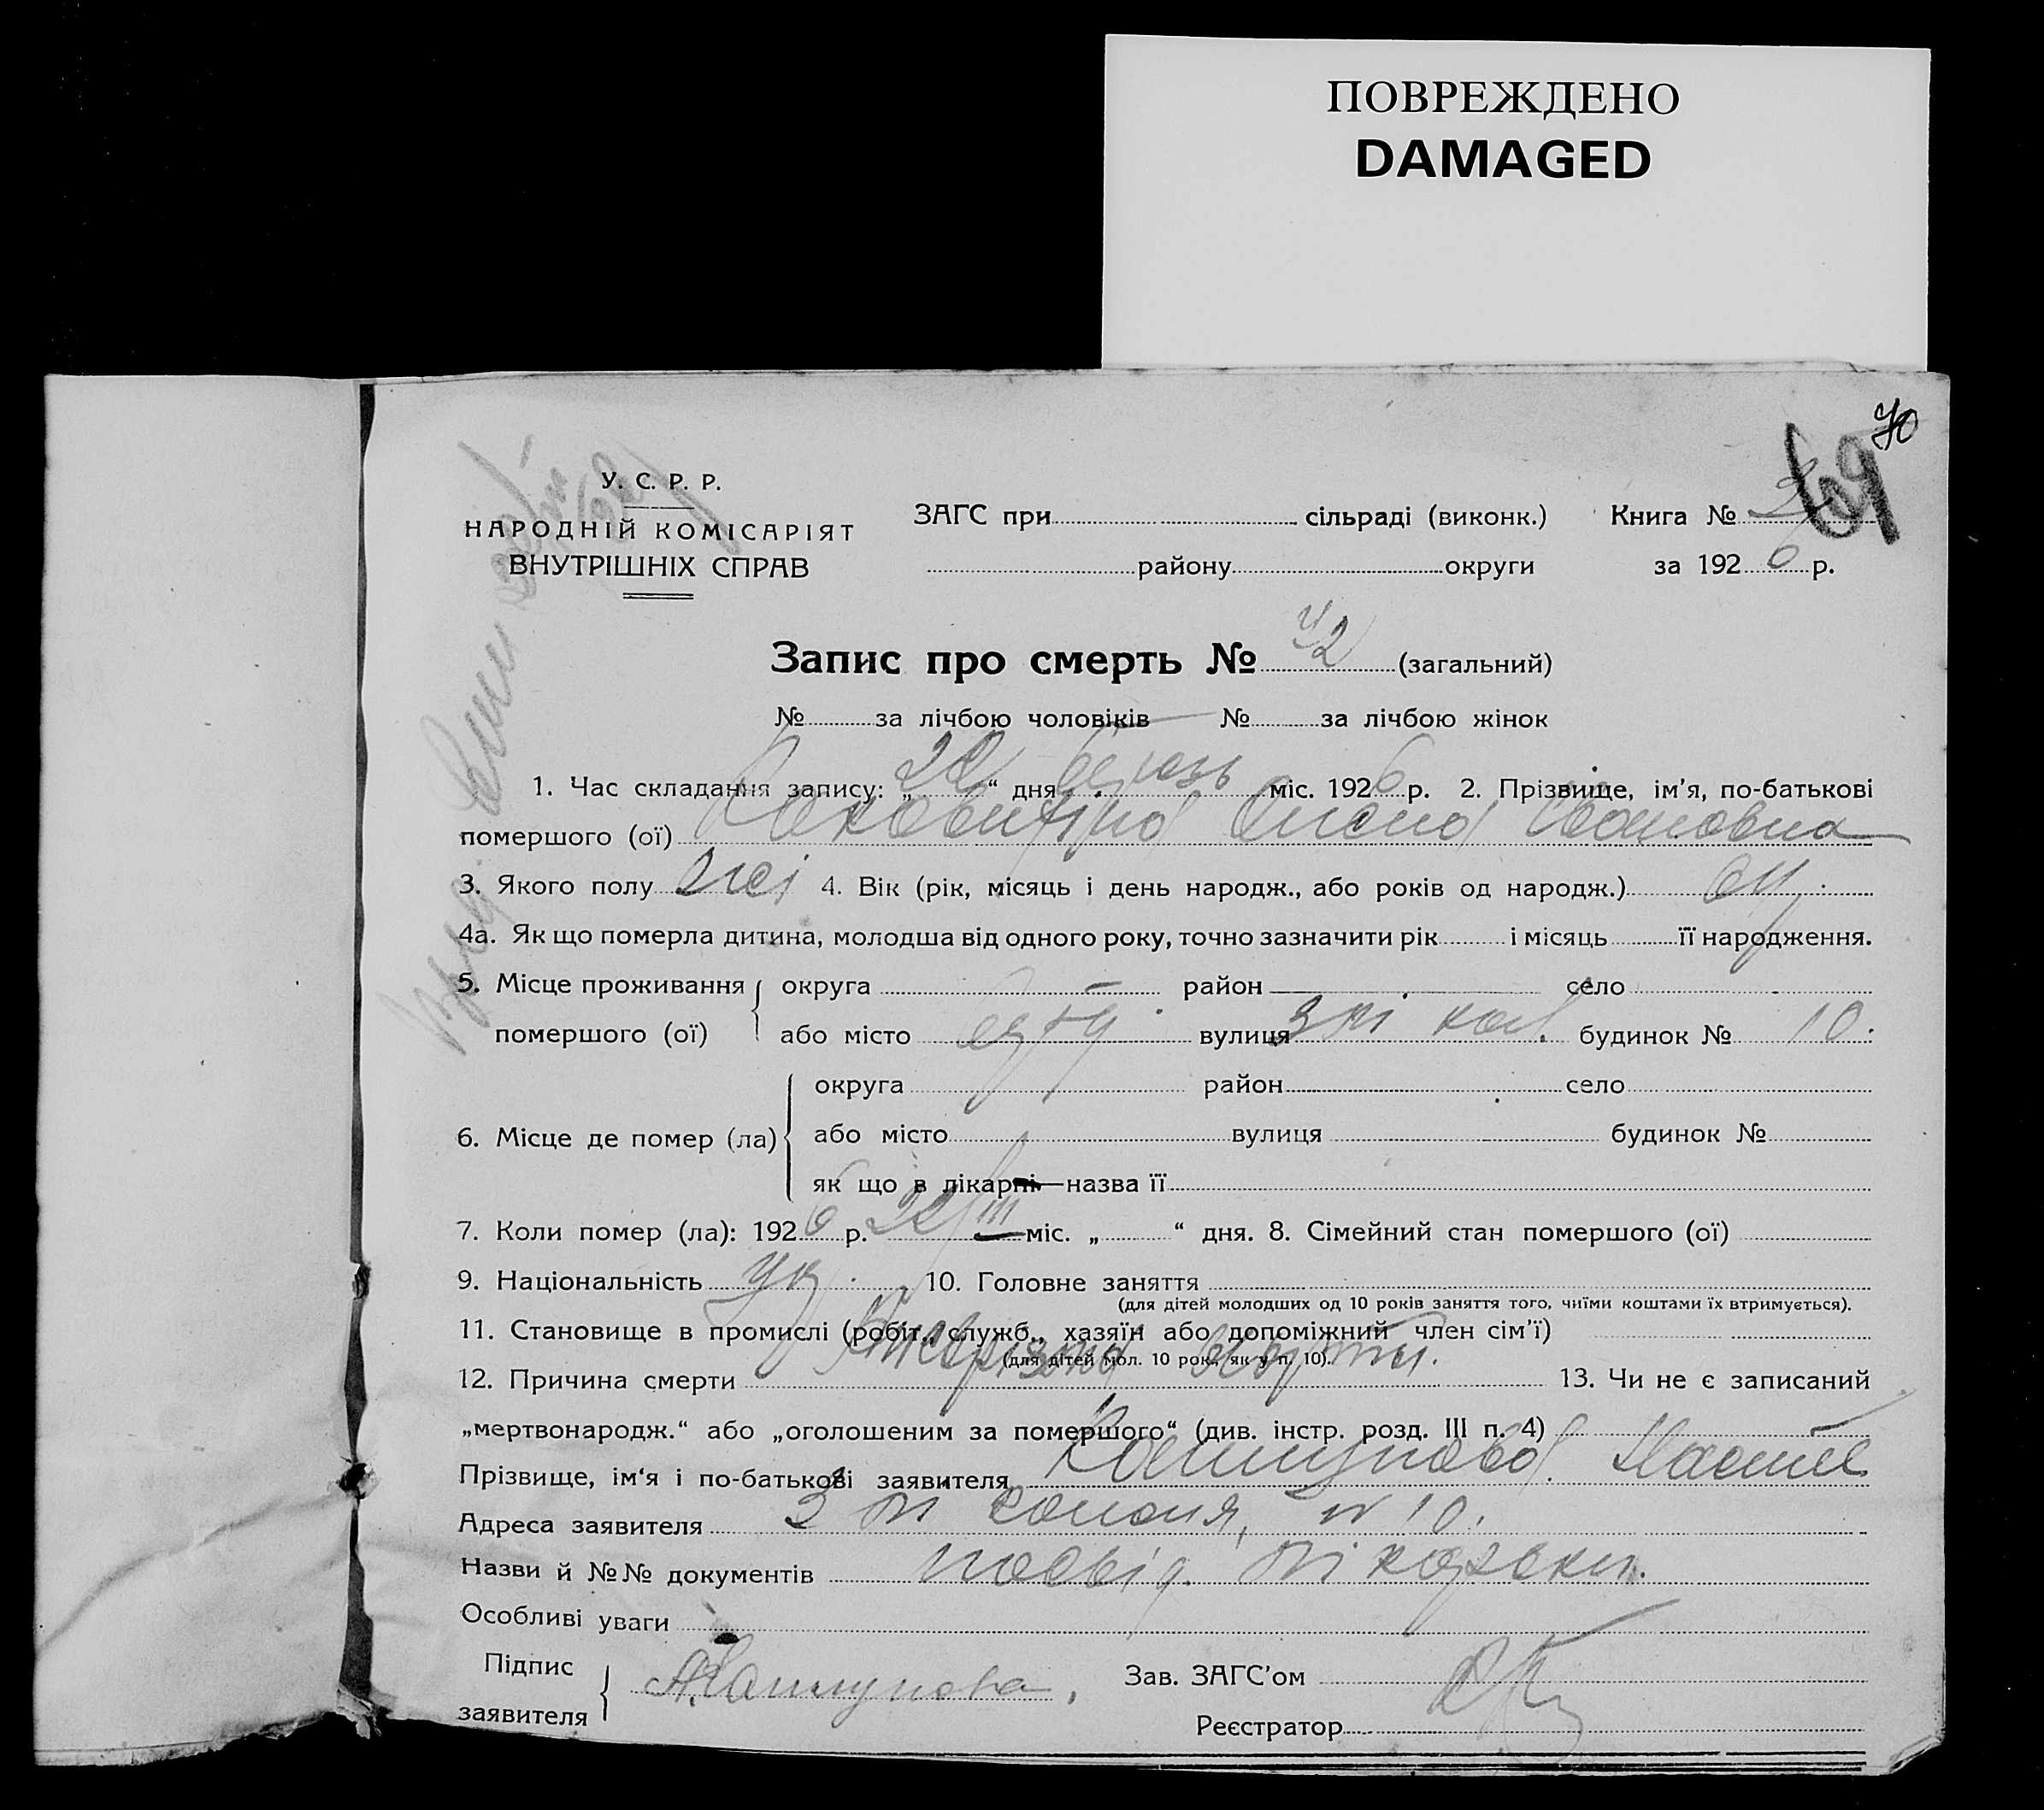 ПОВРЕЖДЕНО
DAMAGED
70
69
У. С. Р. Р.
НАРОДНІЙ КОМІСАРІЯТ
ВНУТРІШНІХ СПРАВ
ЗАГС при сільраді (виконк.) Книга №
району округи за 192 6 р.
Запис про смерть № 42 (загальний)
№ за лічбою чоловіків № за лічбою жінок
1. Час складання запису: „ 22 “ дня березь міс. 192 6 р. 2. Прізвище, ім’я, по-батькові
помершого (ої) Ивановна
3. Якого полу жі 4. Вік (рік, місяць і день народж., або років од народж.)
4а. Як що померла дитина, молодша від одного року, точно зазначити рік і місяць її народження.
5. Місце проживання округа район село
помершого (ої) або місто вулиця 3 кол. будинок № 10.
округа район село
6. Місце де помер (ла) або місто вулиця будинок №
як що в лікарні—назва її
7. Коли помер (ла): 192 6 р. 22/III міс. „ “ дня. 8. Сімейний стан помершого (ої)
9. Національність Укр. 10. Головне заняття
(для дітей молодших од 10 років заняття того, чиїми коштами їх втримується).
11. Становище в промислі (робіт., служб., хазяїн або допоміжний член сім’ї)
(для дітей мол. 10 рок., як у п. 10).
12. Причина смерти Аневрізма аорти. 13. Чи не є записаний
„мертвонародж.“ або „оголошеним за помершого“ (див. інстр. розд. III п. 4)
Прізвище, ім‘я і по-батькові заявителя Кашпунова
Адреса заявителя 3 колонія, № 10.
Назви й №№ документів посвід. лікарськ.
Особливі уваги
Підпис
заявителя А. Кашпунова
Зав. ЗАГС’ом
Реєстратор